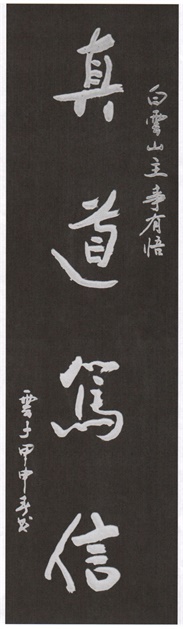 白雲山主事有悟
真道篤信
雲士甲申春書